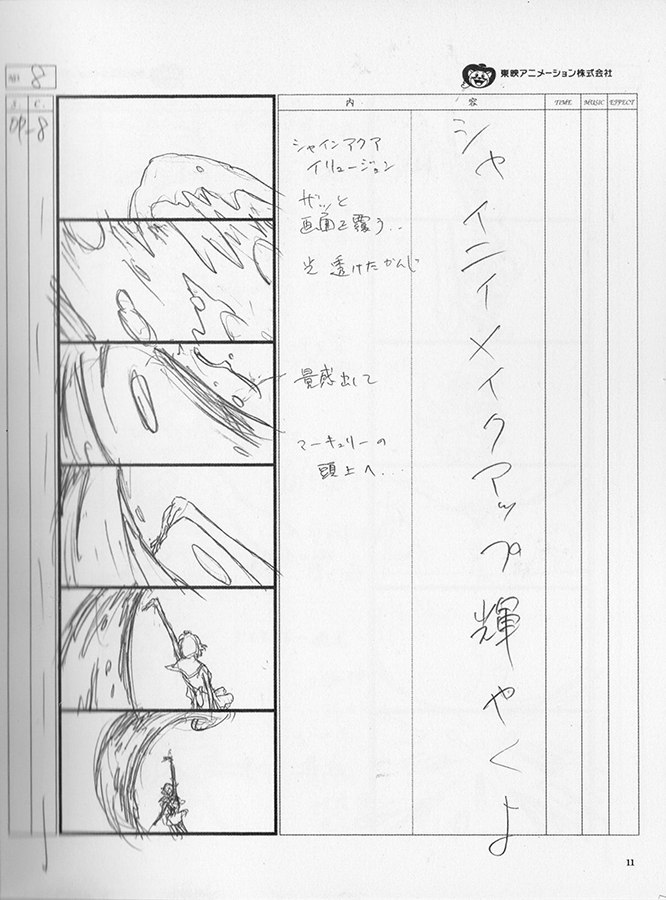 東映アニメーション株式会社
8
S. C.
内 容 TIME MUSIC EFFECT
OP-8
シャインアクア
イリュージョン
ザッと
画面を覆う..
光 透けたかんじ
量感出して
マーキュリーの
頭上へ...
シャイニイメイクアップ輝やくよ
11